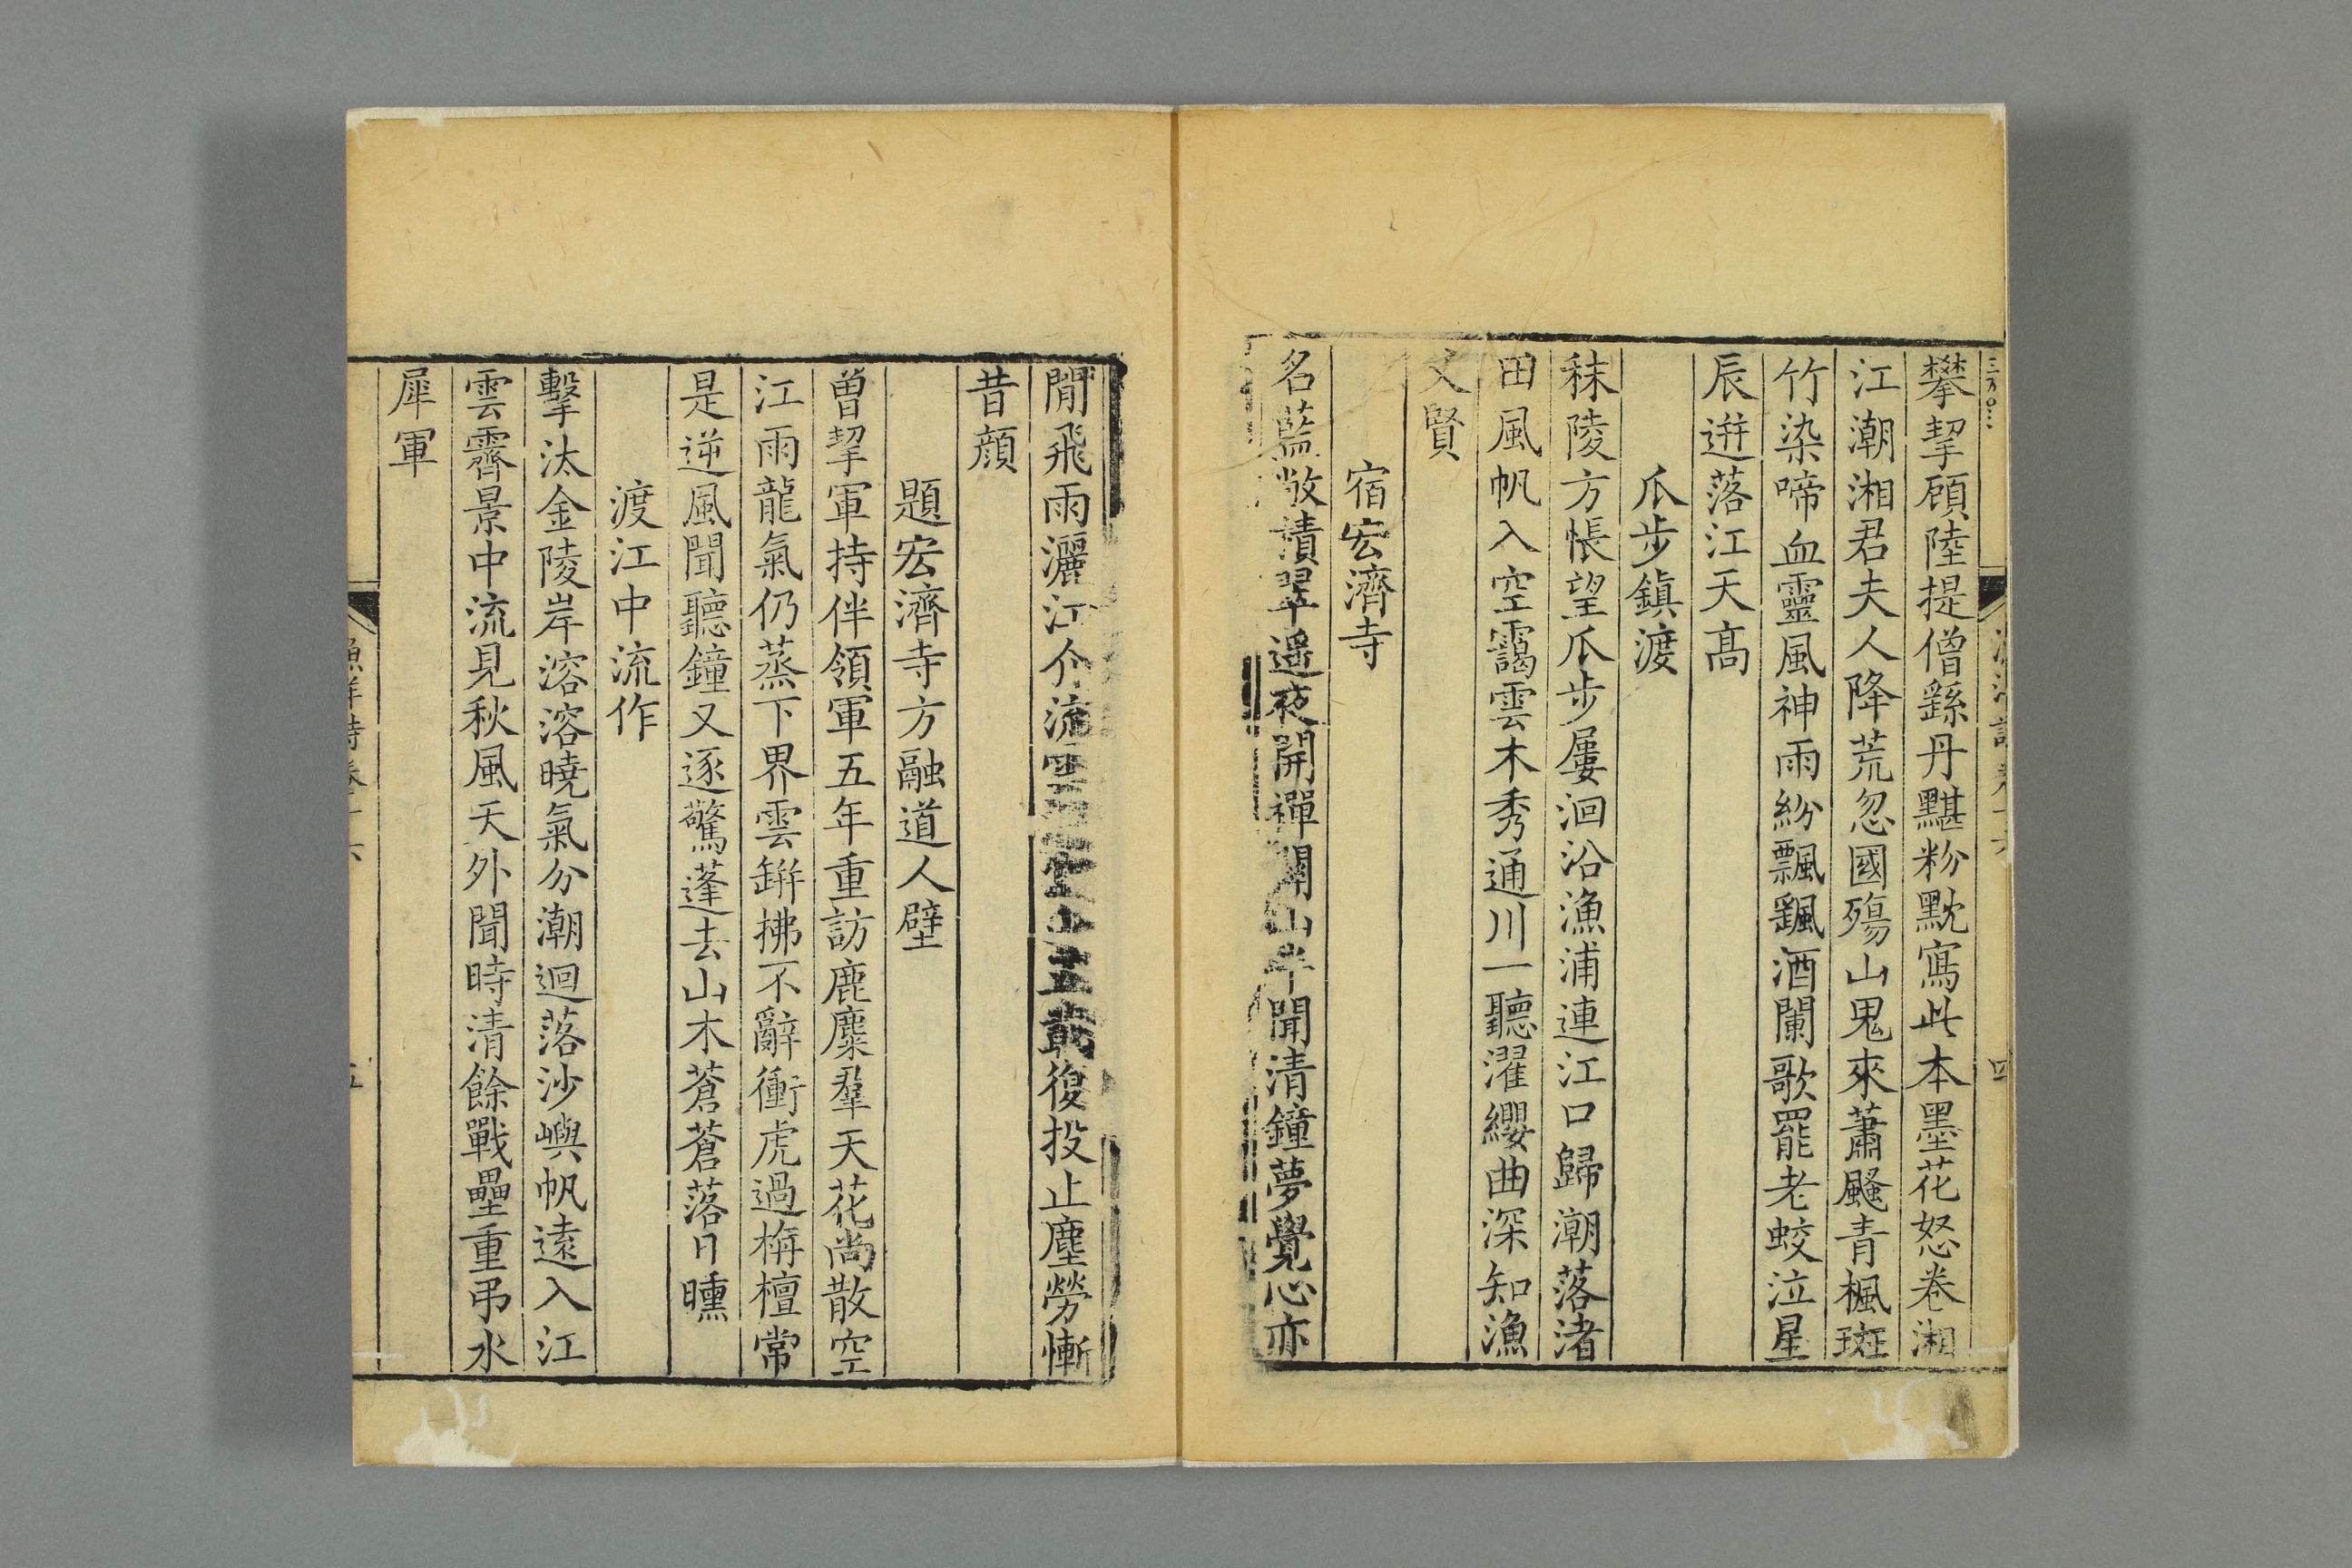 攀挈顧陸提僧繇丹黮粉黕寫此本墨花怒卷湘
江潮湘君夫人降荒忽國殤山鬼來蕭颾青楓斑
竹染啼血靈風神雨紛飄颻酒闌歌罷老蛟泣星
辰迸落江天高
瓜步鎮渡
秣陵方悵望瓜步屢洄沿漁浦連江口歸潮落渚
田風帆入空靄雲木秀通川一聽濯纓曲深知漁
父賢
宿宏濟寺
名藍敞積翠遥夜開禪關山半聞清鐘夢覺心亦
閒飛雨灑江介流雲五載復投止塵勞慚
昔顔
題宏濟寺方融道人壁
曾挈軍持伴領軍五年重訪鹿麋羣天花尚散空
江雨龍氣仍蒸下界雲缾拂不辭衝虎過栴檀常
是逆風聞聽鐘又逐驚蓬去山木蒼蒼落日曛
渡江中流作
擊汰金陵岸溶溶曉氣分潮迴落沙嶼帆遠入江
雲霽景中流見秋風天外聞時清餘戰壘重弔水
犀軍
漁洋詩卷十六
五